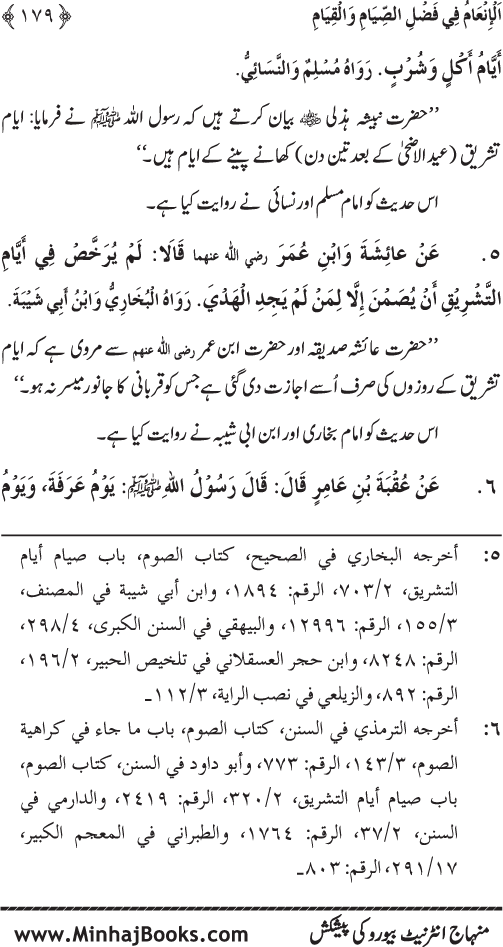 اَلْإِنْعَامُ فِي فَضْلِ الصِّيَامِ وَالْقِيَامِ ﴿۱۷۹﴾
أَيَّامُ أَكْلٍ وَشُرْبٍ. رَوَاهُ مُسْلِمٌ وَالنَّسَائِيُّ.
’’حضرت نبیشہ ہذلی ﷜ بیان کرتے ہیں کہ رسول اللہ ﷺ نے فرمایا: ایام
تشریق (عید الاضحیٰ کے بعد تین دن) کھانے پینے کے ایام ہیں۔‘‘
اس حدیث کو امام مسلم اور نسائی نے روایت کیا ہے۔
۵. عَنْ عَائِشَةَ وَابْنِ عُمَرَ رضي الله عنهما قَالَا: لَمْ يُرَخَّصْ فِي أَيَّامِ
التَّشْرِيْقِ أَنْ يُصَمْنَ إِلَّا لِمَنْ لَمْ يَجِدِ الْهَدْيَ. رَوَاهُ الْبُخَارِيُّ وَابْنُ أَبِي شَيْبَةَ.
’’حضرت عائشہ صدیقہ اور حضرت ابن عمر رضي الله عنهم سے مروی ہے کہ ایام
تشریق کے روزوں کی صرف اُسے اجازت دی گئی ہے جس کو قربانی کا جانور میسر نہ ہو۔‘‘
اس حدیث کو امام بخاری اور ابن ابی شیبہ نے روایت کیا ہے۔
۶. عَنْ عُقْبَةَ بْنِ عَامِرٍ قَالَ: قَالَ رَسُوْلُ اللهِ ﷺ: يَوْمُ عَرَفَةَ، وَيَوْمُ
۵: أخرجه البخاري في الصحيح، كتاب الصوم، باب صيام أيام
التشريق، ۲/۷۰۳، الرقم: ۱۸۹٤، وابن أبي شيبة في المصنف،
۳/۱۵۵، الرقم: ۱۲۹۹٦، والبيهقي في السنن الكبرى، ٤/۲۹۸،
الرقم: ۸۲٤۸، وابن حجر العسقلاني في تلخيص الحبير، ۲/۱۹٦،
الرقم: ۸۹۲، والزيلعي في نصب الراية، ۳/۱۱۲۔
٦: أخرجه الترمذي في السنن، كتاب الصوم، باب ما جاء في كراهية
الصوم، ۳/۱٤۳، الرقم: ۷۷۳، وأبو داود في السنن، كتاب الصوم،
باب صيام أيام التشريق، ۲/۳۲۰، الرقم: ۲٤۱۹، والدارمي في
السنن، ۲/۳۷، الرقم: ۱۷٦٤، والطبراني في المعجم الكبير،
۱۷/۲۹۱، الرقم: ۸۰۳۔
منہاج انٹرنیٹ بیورو کی پیشکش www.MinhajBooks.com